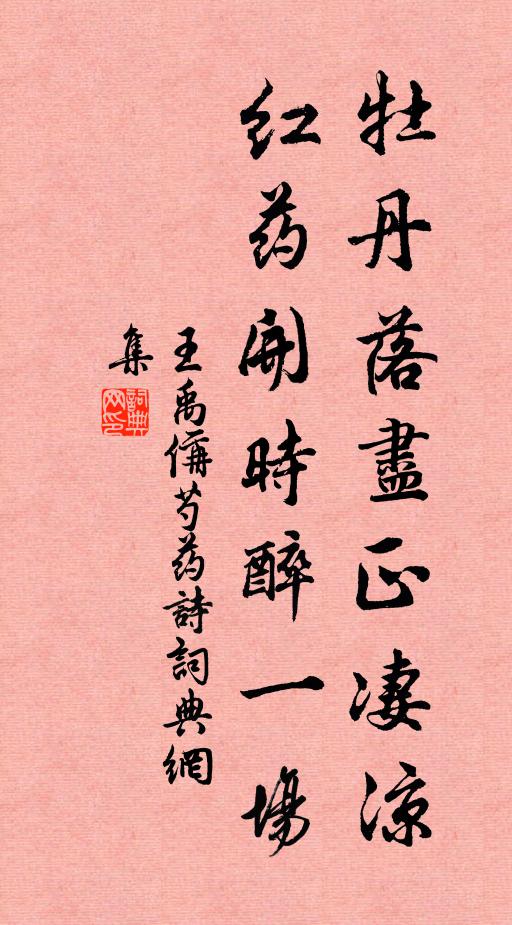 牡丹落盡正凄涼
红药開時醉一場
王禹偁芍药詩詞典網
集
詞典
网印